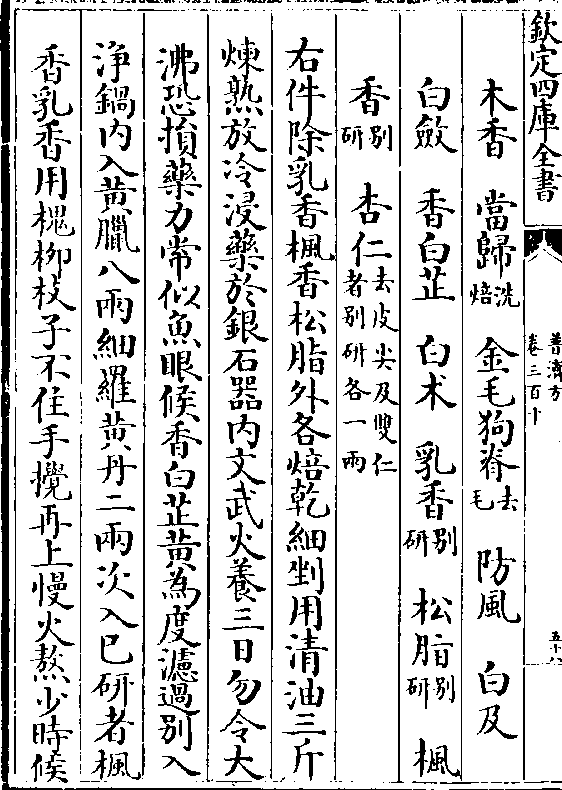 欽定四庫全書
普濟方
卷三百十
木香 當歸洗焙 金毛狗脊去毛 防風 白及
白斂 香白芷 白术 乳香別研 松脂別研 楓
香別研 杏仁去皮尖及雙仁者別研各一兩
右件除乳香楓香松脂外各焙乾細剉用清油三斤
煉熟放冷浸藥於銀石器内文武火養三日勿令大
沸恐損藥力常似魚眼候香白芷黄為度濾過別入
淨鍋内入黄臘八兩細羅黄丹二兩次入已研者楓
香乳香用槐柳枝子不住手攪再上慢火熬少時候